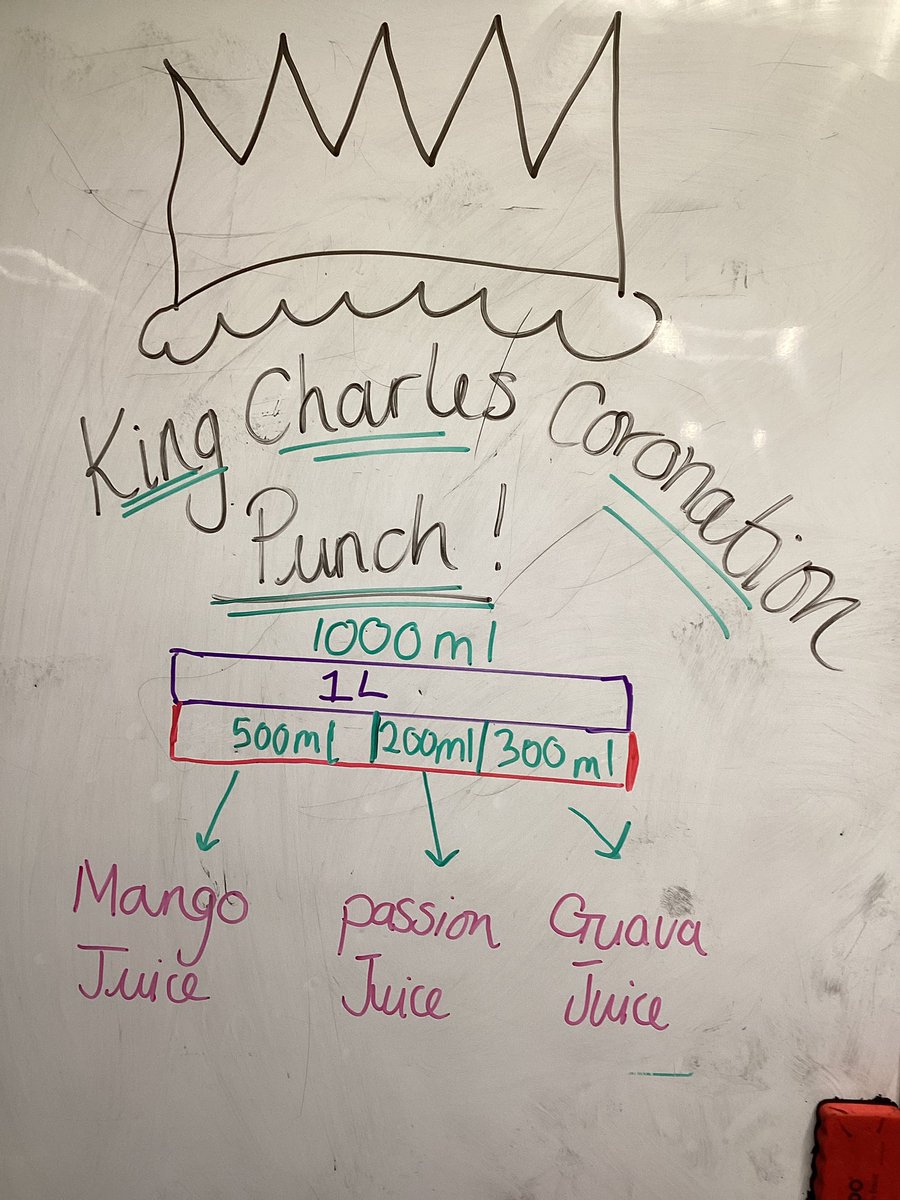 King Charles Coronation
Punch!
1000ml
1L
500ml 200ml 300ml
Mango passion Guava
Juice Juice Juice